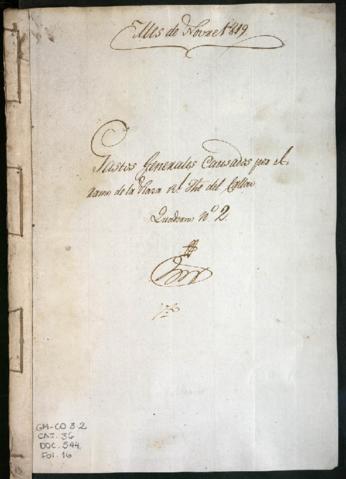 Mes de Novre 1819
Gastos Generales Causados por el
ramo de la Plaza Rl del Callao
Quaderno No 2
GM-CO 3.2
CAJ. 36
DOC. 544
FOL. 16